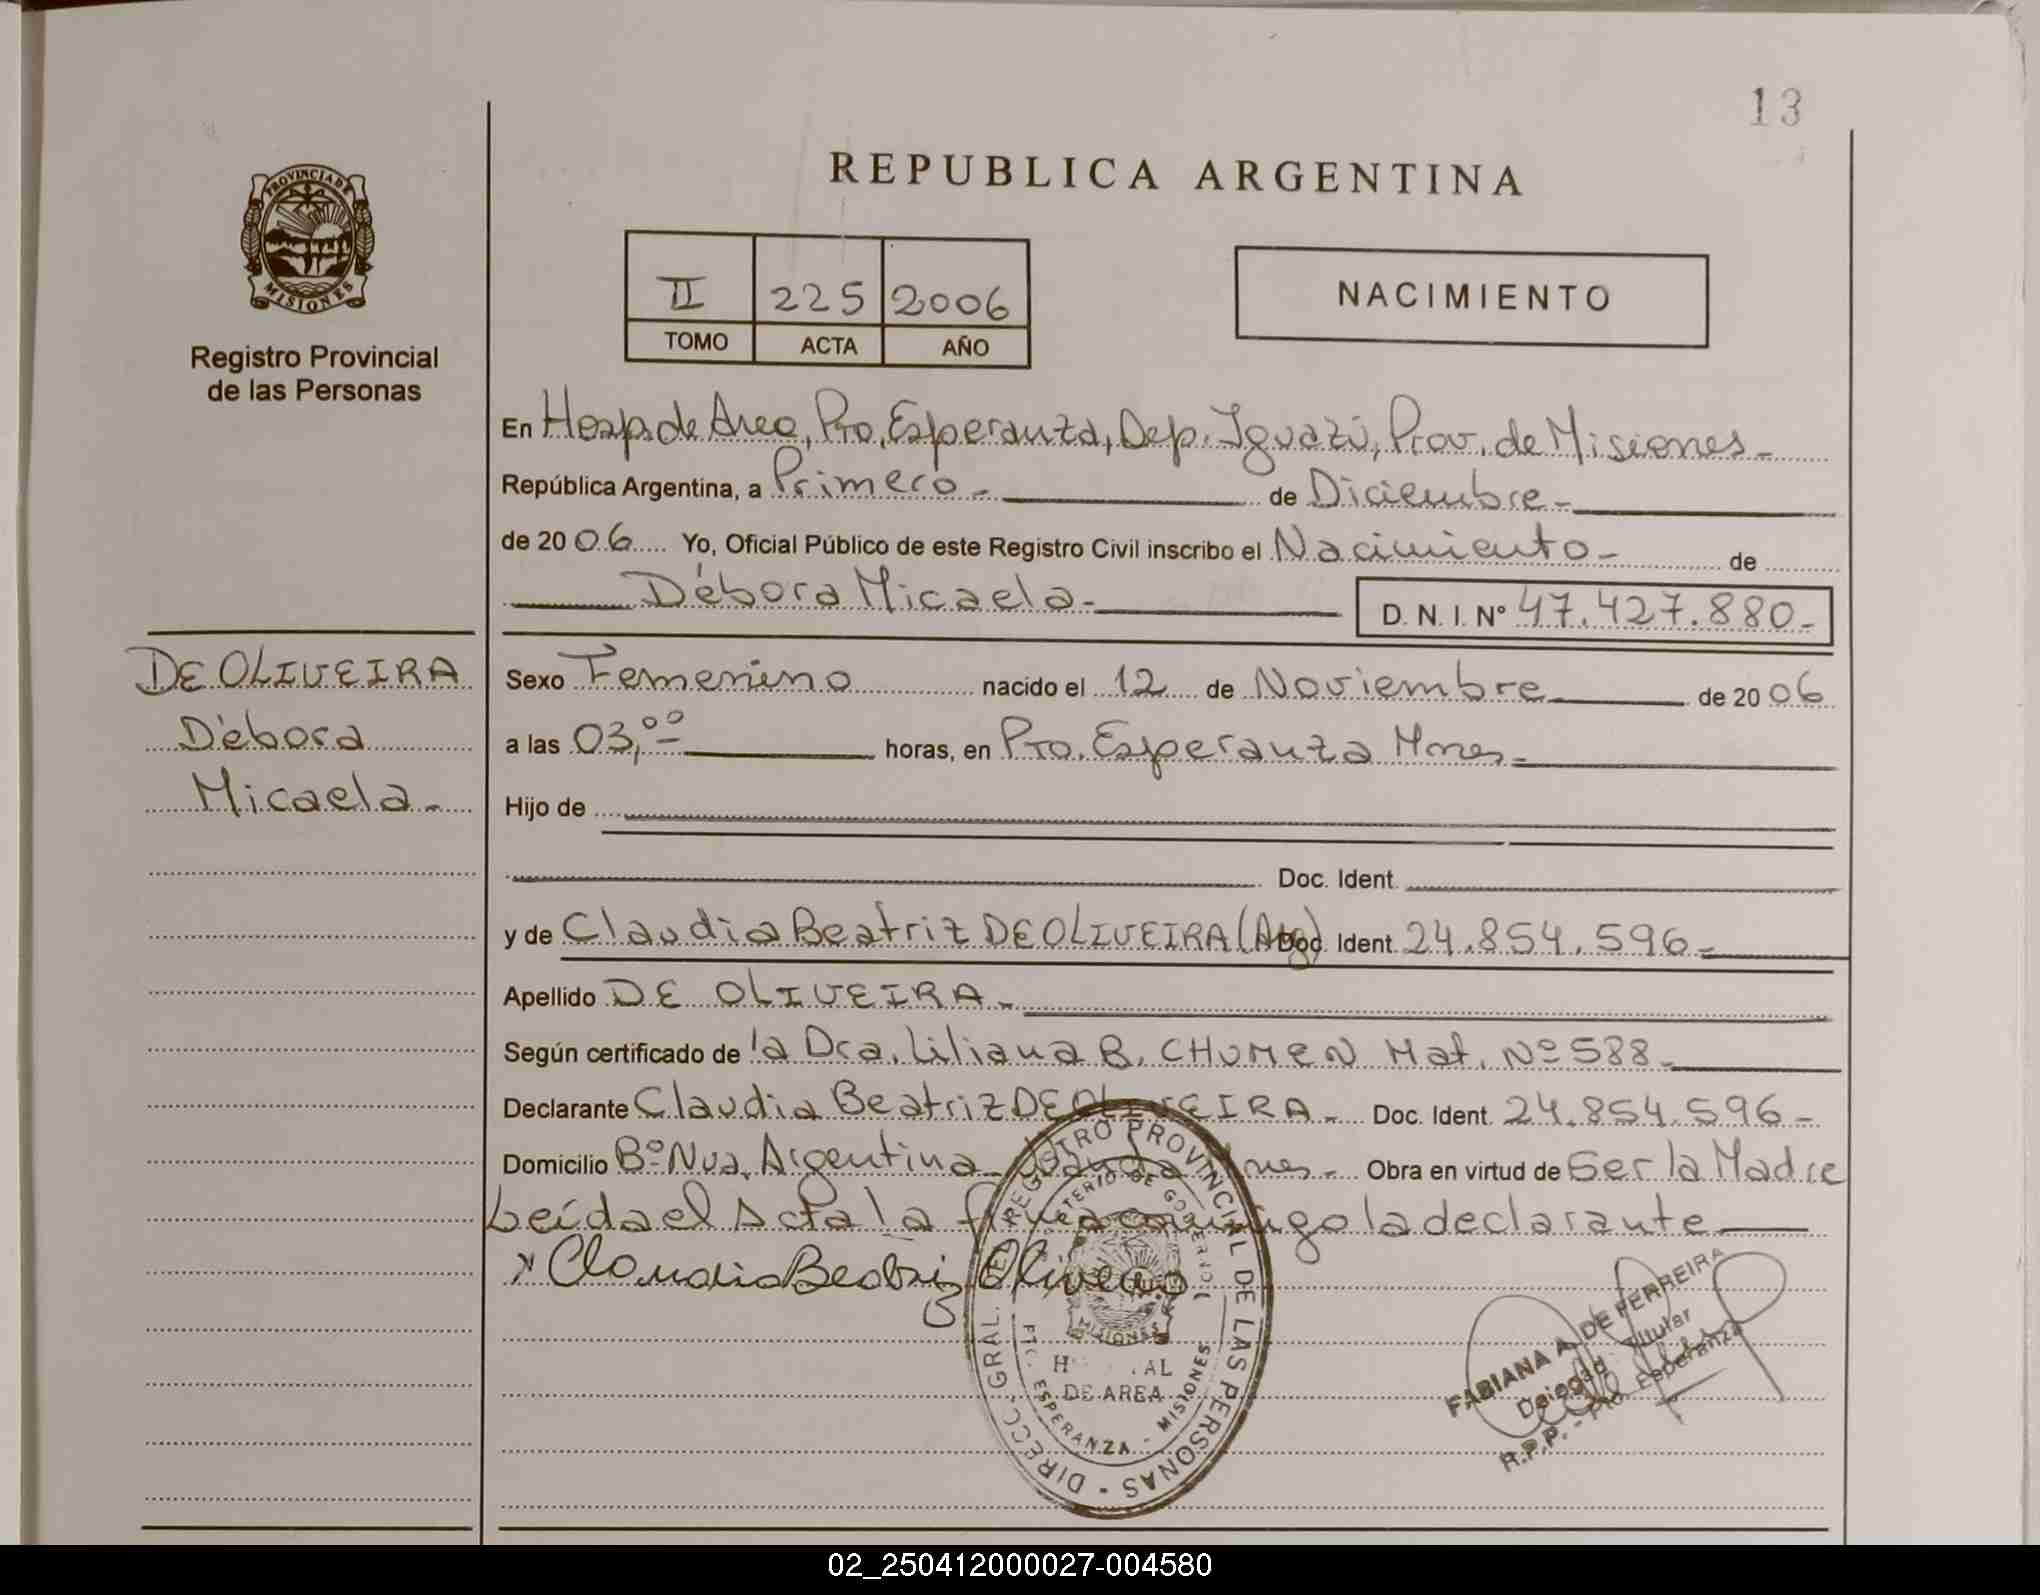 13
REPUBLICA ARGENTINA
PROVINCIA DE
MISIONES
Registro Provincial
de las Personas
II 225 2006
TOMO ACTA AÑO
NACIMIENTO
En Hosp. de Area, Pto. Esperanza, Dep. Iguazú, Prov. de Misiones-
República Argentina, a Primero- de Diciembre-
de 2006 Yo, Oficial Público de este Registro Civil inscribo el Nacimiento- de
Débora Micaela-
D. N. I. Nº 47.427.880-
DE OLIVEIRA
Débora
Micaela-
Sexo Femenino nacido el 12 de Noviembre de 2006
a las 03,00 horas, en Pto. Esperanza Mnes-
Hijo de
Doc. Ident.
y de Claudia Beatriz DE OLIVEIRA (Arg) Doc. Ident. 24.854.596-
Apellido DE OLIVEIRA-
Según certificado de la Dra. Liliana B. CHUMEN Mat. Nº 588-
Declarante Claudia Beatriz DE OLIVEIRA- Doc. Ident. 24.854.596-
Domicilio Bº Nva. Argentina- Wanda Mnes- Obra en virtud de Ser la Madre
Leída el Acta la firma conmigo la declarante
x Claudia Beatriz Oliveira
DIRECC. GRAL. REGISTRO PROVINCIAL DE LAS PERSONAS -
MINISTERIO DE GOBIERNO
MISIONES
HOSPITAL
DE AREA
PTO. ESPERANZA - MISIONES
FABIANA A. DE FERREIRA
Delegada Titular
R.P.P. - Pto. Esperanza
02_250412000027-004580